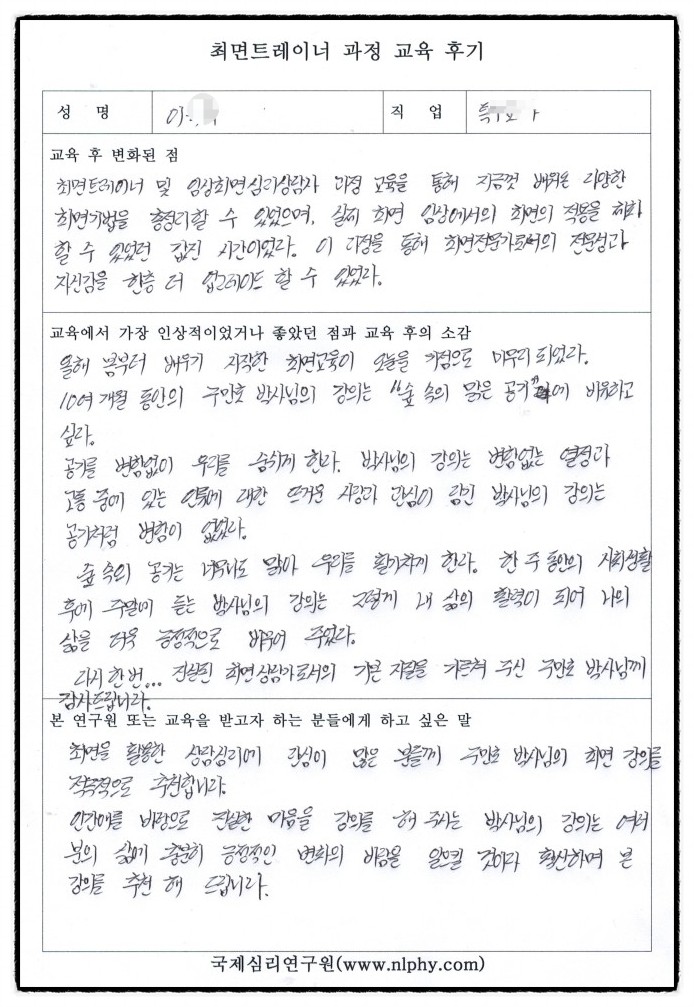 최면트레이너 과정 교육 후기
성 명 이 직 업
교육 후 변화된 점
최면트레이너 및 임상최면심리상담사 과정 교육을 통해 지금껏 배워온 다양한
최면기법을 총정리할 수 있었으며, 실제 최면 임상에서의 최면의 적용을 체화
할 수 있었던 값진 시간이었다. 이 과정을 통해 최면전문가로서의 전문성과
자신감을 한층 더 업그레이드 할 수 있었다.
교육에서 가장 인상적이었거나 좋았던 점과 교육 후의 소감
올해 봄부터 배우기 시작한 최면교육이 오늘을 기점으로 마무리 되었다.
10여 개월 동안의 구만호 박사님의 강의는 "숲 속의 맑은 공기"에 비유하고
싶다.
공기를 변함없이 우리를 숨쉬게 한다. 박사님의 강의는 변함없는 열정과
고통 중에 있는 인류에 대한 뜨거운 사랑과 관심이 담긴 박사님의 강의는
공기처럼 변함이 없었다.
숲 속의 공기는 너무나도 맑아 우리를 활기차게 한다. 한 주 동안의 사회생활
후에 주말에 듣는 박사님의 강의는 그렇게 내 삶의 활력이 되어 나의
삶을 더욱 긍정적으로 바꾸어 주었다.
다시 한번... 진실된 최면상담가로서의 기본 자질을 가르쳐 주신 구만호 박사님께
감사드립니다.
본 연구원 또는 교육을 받고자 하는 분들에게 하고 싶은 말
최면을 활용한 상담심리에 관심이 많은 분들께 구만호 박사님의 최면 강의를
적극적으로 추천합니다.
인간애를 바탕으로 진실한 마음을 강의를 해 주시는 박사님의 강의는 여러
분의 삶에 충분히 긍정적인 변화의 바람을 일으킬 것이라 확신하며 본
강의를 추천 해 드립니다.
국제심리연구원(www.nlphy.com)